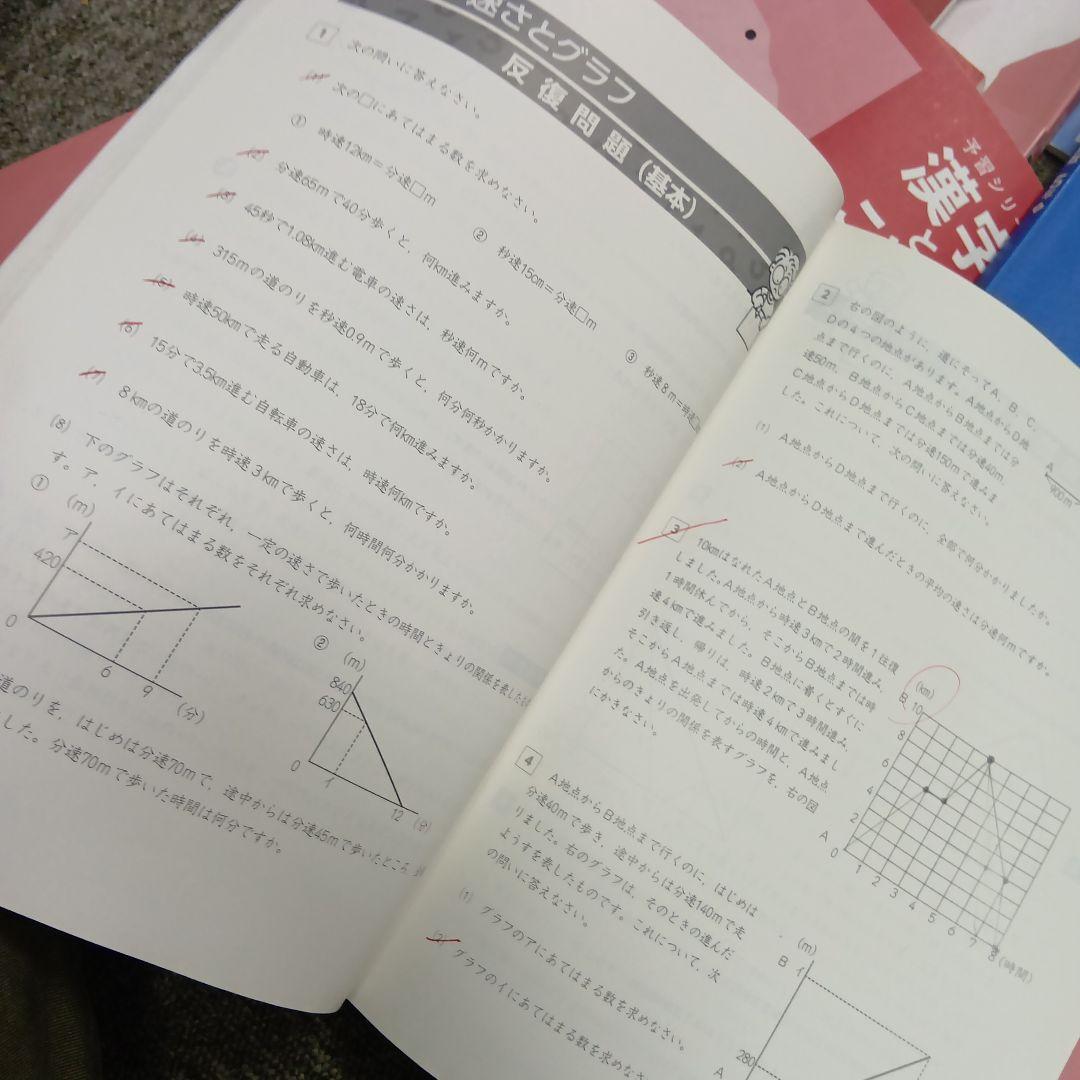 速さとグラフ
反復問題(基本)
1 次の問いに答えなさい。
(1) 次の□にあてはまる数を求めなさい。
① 時速12km=分速□m
② 秒速15cm=分速□m
③ 秒速8m=時速
(2) 分速65mで40分歩くと,何km進みますか。
(3) 45秒で1.08km進む電車の速さは,秒速何mですか。
(4) 315mの道のりを秒速0.9mで歩くと,何分何秒かかりますか。
(5) 時速50kmで走る自動車は,18分で何km進みますか。
(6) 15分で3.5km進む自転車の速さは,時速何kmですか。
(7) 8kmの道のりを時速3kmで歩くと,何時間何分かかりますか。
(8) 下のグラフはそれぞれ,一定の速さで歩いたときの時間ときょりの関係を表したもので
す。ア,イにあてはまる数をそれぞれ求めなさい。
①
(m)
ア
420
0
6
9
(分)
②
(m)
840
630
0
イ
12
(分)
道のりを,はじめは分速70mで,途中からは分速45mで歩いたところ,
した。分速70mで歩いた時間は何分ですか。
2 右の図のように,道にそってA,B,C,
Dの4つの地点があります。A地点からD地
点まで行くのに,A地点からB地点までは分
速50m,B地点からC地点までは分速40m,
C地点からD地点までは分速150mで進みま
した。これについて,次の問いに答えなさい。
A
900m
(1) A地点からD地点まで行くのに,全部で何分かかりましたか。
(2) A地点からD地点まで進んだときの平均の速さは分速何mですか。
3 10kmはなれたA地点とB地点の間を1往復
しました。A地点から時速3kmで2時間進み,
1時間休んでから,そこからB地点までは時
速4kmで進みました。B地点に着くとすぐに
引き返し,帰りは,時速2kmで3時間進み,
そこからA地点までは時速4kmで進みまし
た。A地点を出発してからの時間と,A地点
からのきょりの関係を表すグラフを,右の図
にかきなさい。
(km)
B 10
8
6
4
2
A 0
1 2 3 4 5 6 7 8
(時間)
4 A地点からB地点まで行くのに,はじめは
分速40mで歩き,途中からは分速140mで走
りました。右のグラフは,そのときの進んだ
ようすを表したものです。これについて,次
の問いに答えなさい。
(1) グラフのアにあてはまる数を求めなさい。
(2) グラフのイにあてはまる数を求めなさ
(m)
B イ
280
A
予習シリ
漢字
と